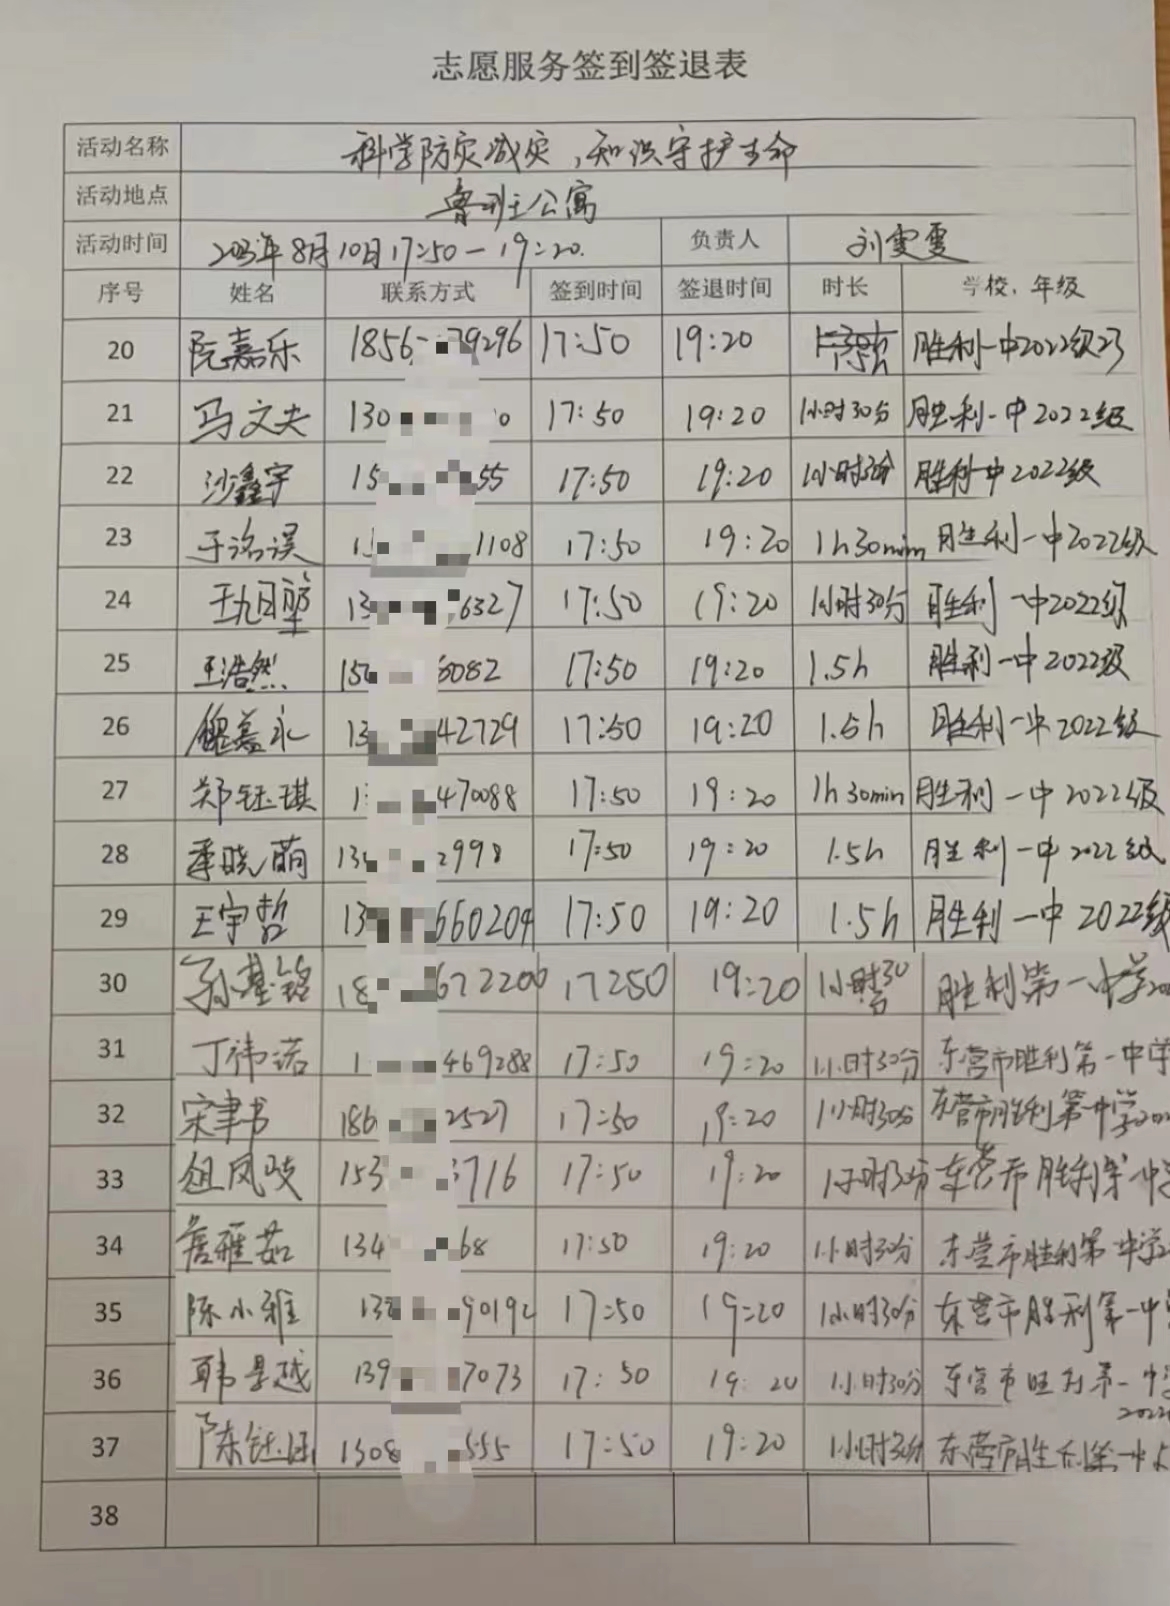 志愿服务签到签退表
活动名称 科学防灾减灾,知识守护生命
活动地点 鲁班公寓
活动时间 2023年8月10日17:50-19:20. 负责人 刘雯雯
序号 姓名 联系方式 签到时间 签退时间 时长 学校、年级
20 阮嘉乐 1856 79296 17:50 19:20 胜利一中2022级
21 马文夫 130 0 17:50 19:20 1小时30分 胜利一中2022级
22 沙鑫宇 15 55 17:50 19:20 1小时30分 胜利一中2022级
23 于洺误 1 1108 17:50 19:20 1h30min 胜利一中2022级
24 13 6327 17:50 19:20 1小时30分 胜利一中2022级
25 王浩然 150 6082 17:50 19:20 1.5h 胜利一中2022级
26 13 42729 17:50 19:20 1.5h 胜利一中2022级
27 郑钰琪 1 470088 17:50 19:20 1h30min 胜利一中2022级
28 季晓萌 13 2998 17:50 19:20 1.5h 胜利一中2022级
29 王宇哲 13 660204 17:50 19:20 1.5h 胜利一中2022级
30 孙基铭 18 672200 17:50 19:20 1小时30分 胜利第一中学
31 丁祎诺 1 469288 17:50 19:20 1小时30分 东营市胜利第一中学
32 宋聿书 186 2527 17:50 19:20 1小时30分 东营市胜利第一中学
33 俎凤岐 153 3716 17:50 19:20 1小时30分 东营市胜利第一中学
34 詹雅茹 134 68 17:50 19:20 1小时30分 东营市胜利第一中学
35 陈小雅 13 90192 17:50 19:20 1小时30分 东营市胜利第一中
36 韩昱越 139 7073 17:50 19:20 1小时30分 东营市胜利第一中
37 陈钰涵 1308 555 17:50 19:20 1小时30分 东营市胜利第一中
38